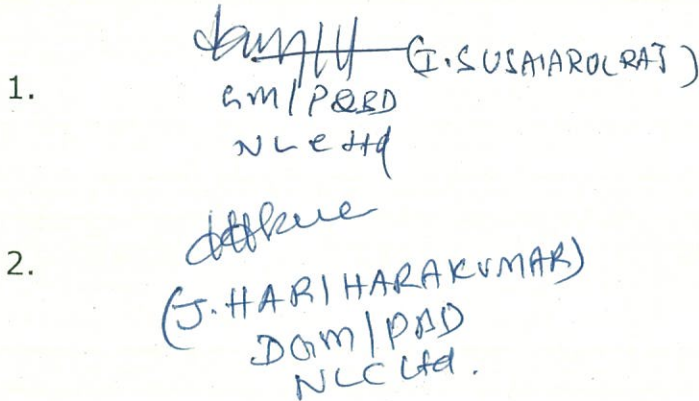 1. (I. SUSAIAROCRAJ)
GM/P&BD
NLC Ltd
2.
(J. HARIHARAKUMAR)
DGM/PBD
NLC Ltd.